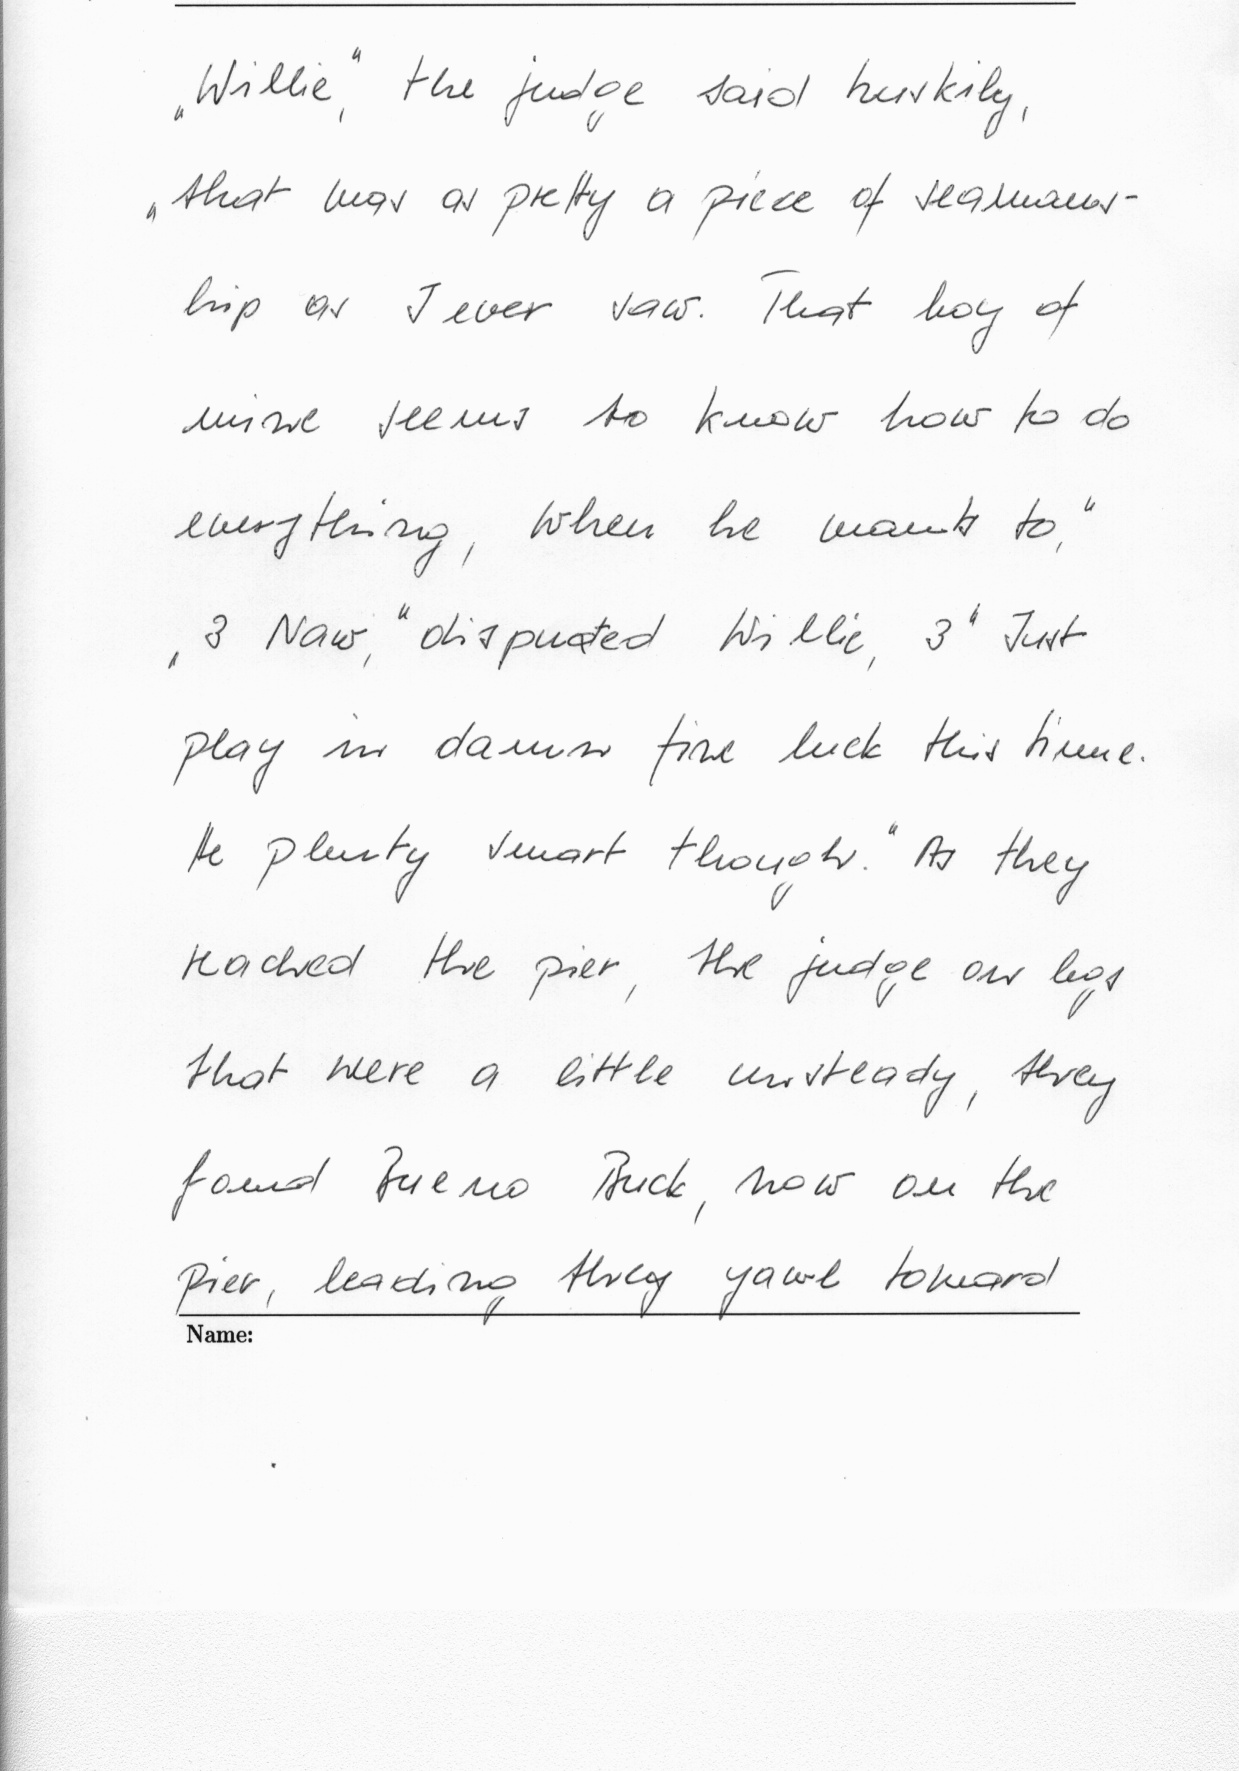 „Willie,“ the judge said huskily,
„that was as pretty a piece of seamans-
hip as I ever saw. That boy of
mine seems to know how to do
everything, when he wants to,“
„3 Naw,“ disputed Willie, 3“ Just
play in damn fine luck this time.
He plenty smart though.“ As they
reached the pier, the judge on legs
that were a little unsteady, they
found Bueno Buck, now on the
pier, leading they yawl toward
Name: